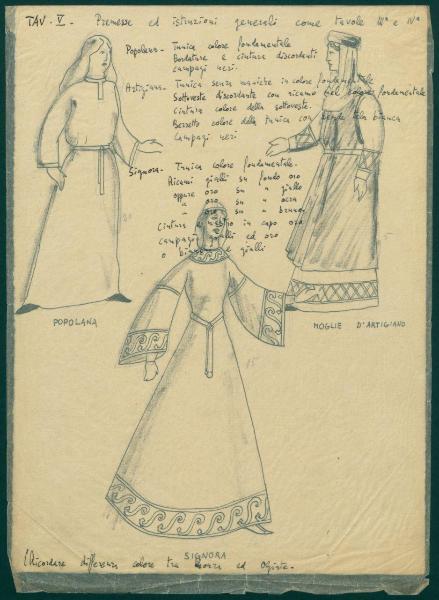 TAV. V. - Premesse ed istruzioni generali come tavole IIIª e IVª
Popolana - Tunica colore fondamentale
Bordature e cintura discordanti
Campagi neri.
Artigiana - Tunica senza maniche in colore fondamentale
Sottoveste discordante con ricamo nel colore fondamentale
Cintura colore della sottoveste.
Berretto colore della tunica con benda tela bianca
Campagi neri
Signora - Tunica colore fondamentale.
Ricami gialli su fondo oro
oppure oro su " giallo
" oro su " ocra
" oro su " bruno
Cintura in capo oro
campagi gialli ed oro
o e gialli
POPOLANA
MOGLIE D'ARTIGIANO
SIGNORA
Ricordare differenza colore tra ed